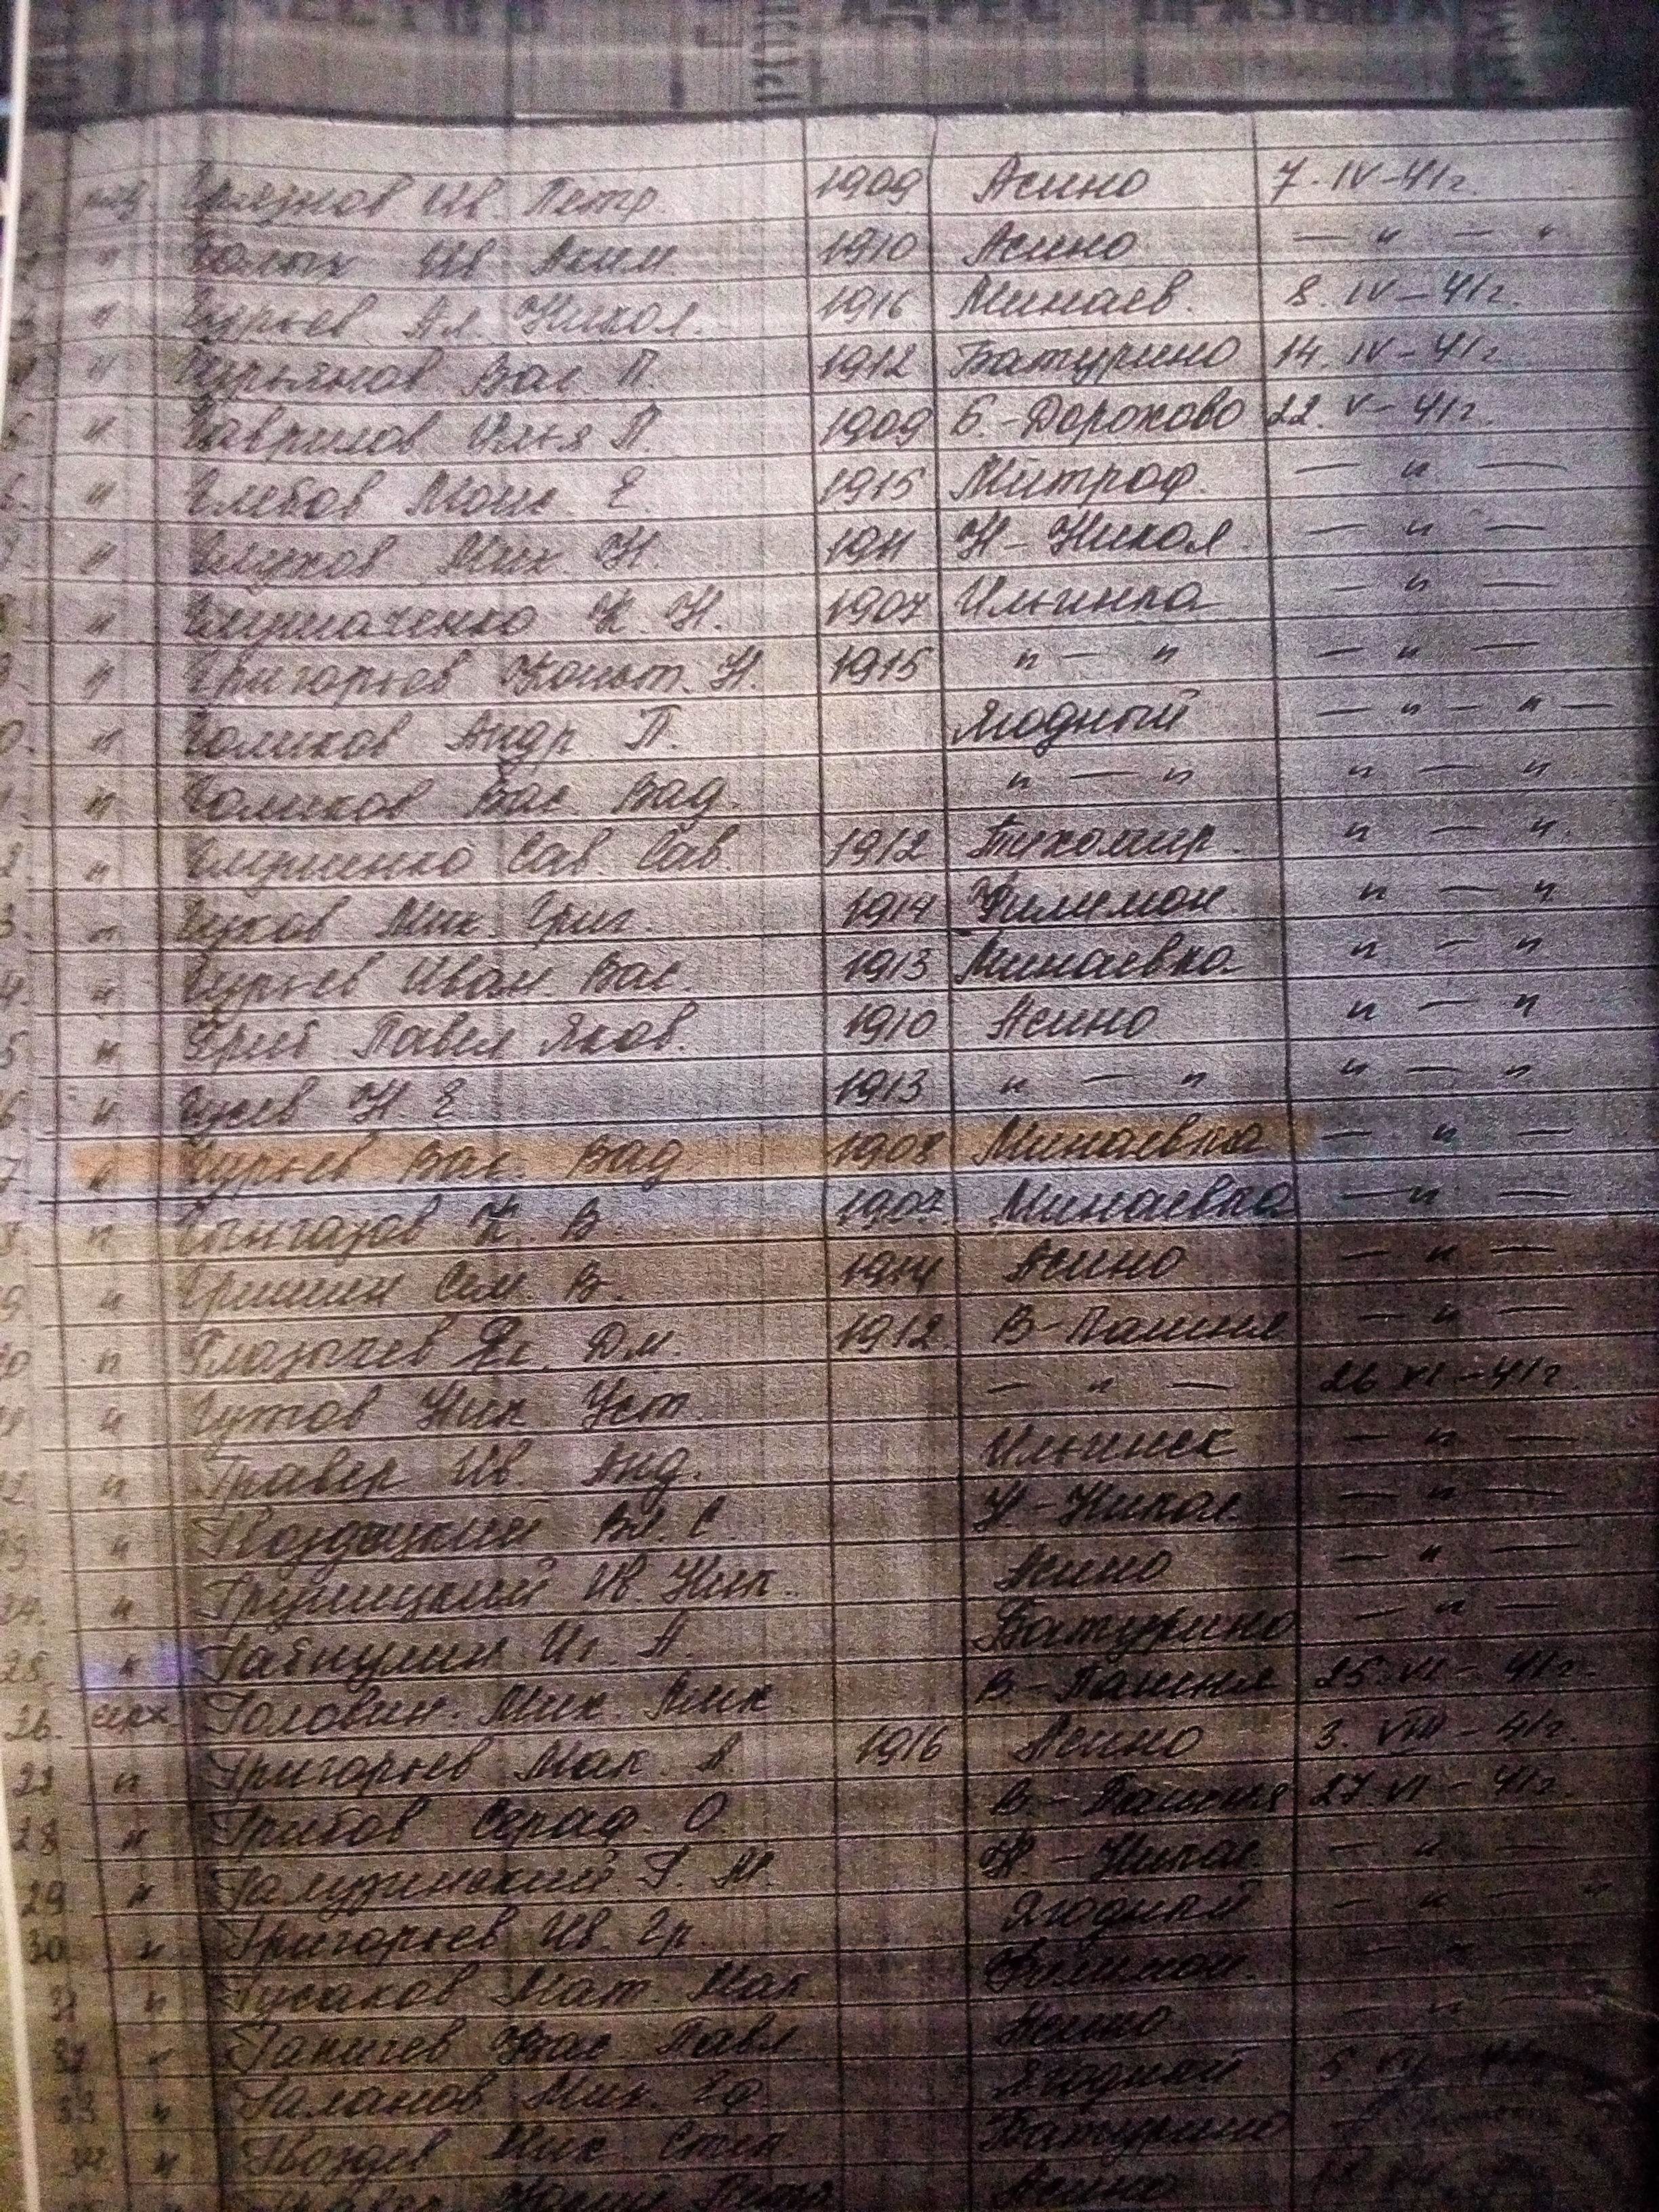 Грязнов Ив. Петр. 1909 Асино 7. IV-41г.
" Голых Ив Аким. 1910 Асино — " — "
" Гурьев Ал. Никол. 1916 Минаев. 8. IV-41г.
" Гурьянов Вас П. 1912 Батурино 14. IV-41г.
" Гаврилов Илья П. 1909 Б.-Дорохово 22. V-41г.
" Глебов Моис. Е. 1915 Митроф. — " —
" Глухов Мих. Н. 1911 Н-Никол. — " —
" К. Н. 1907 Ильинка — " —
" Григорьев Конст. Н. 1915 " — " — " —
" Голиков Андр П. Ягодный — " — " —
" Голиков Вас. Вад. " — " " — "
" Глущенко Сав. Сав. 1912 Тихомир. " — "
" Гуков Мих. Григ. 1914 Филимон " — "
" Гурьев Иван Вас. 1913 Минаевка " — "
" Гриб Павел Яков. 1910 Асино " — "
" Гусев Н. Е 1913 " — " " — "
" Гурьев Вас. Вад 1908 Минаевка — " —
" Гынгазов К. В. 1907 Минаевка — " —
" Гришин Сем. В. 1914 Асино — " —
" Глазычев Як. Дм. 1912 В-Пашня — " —
" Гутов Ник. Уст. — " — 26 VI-41г.
" Гравер Ив. Анд. Ильинск — " —
" Вл. С. Н-Никол. — " —
24. " Ив. Ник. Асино — " —
25. " Габидулин Иг. А. Батурино — " —
26. Головин. Мих. Мих В.-Пашня 25. VI-41г.
" Григорьев Мак. А. 1916 Асино 3. VIII-41г.
28 " Грибов Сераф. О. В.-Пашня 27 VI-41г.
29. " Галузинский Г. М. Н.-Никол. — " —
30. " Григорьев Ив. Гр. Ягодный — " — "
31 " Гусаков Мат. Мак Филимон. — " —
32 " Ганичев Вас Павл Асино — " —
33 " Галанов Мих. Еф. Ягодный 5
34 " Гвоздев Мих Степ Батурино
Асино